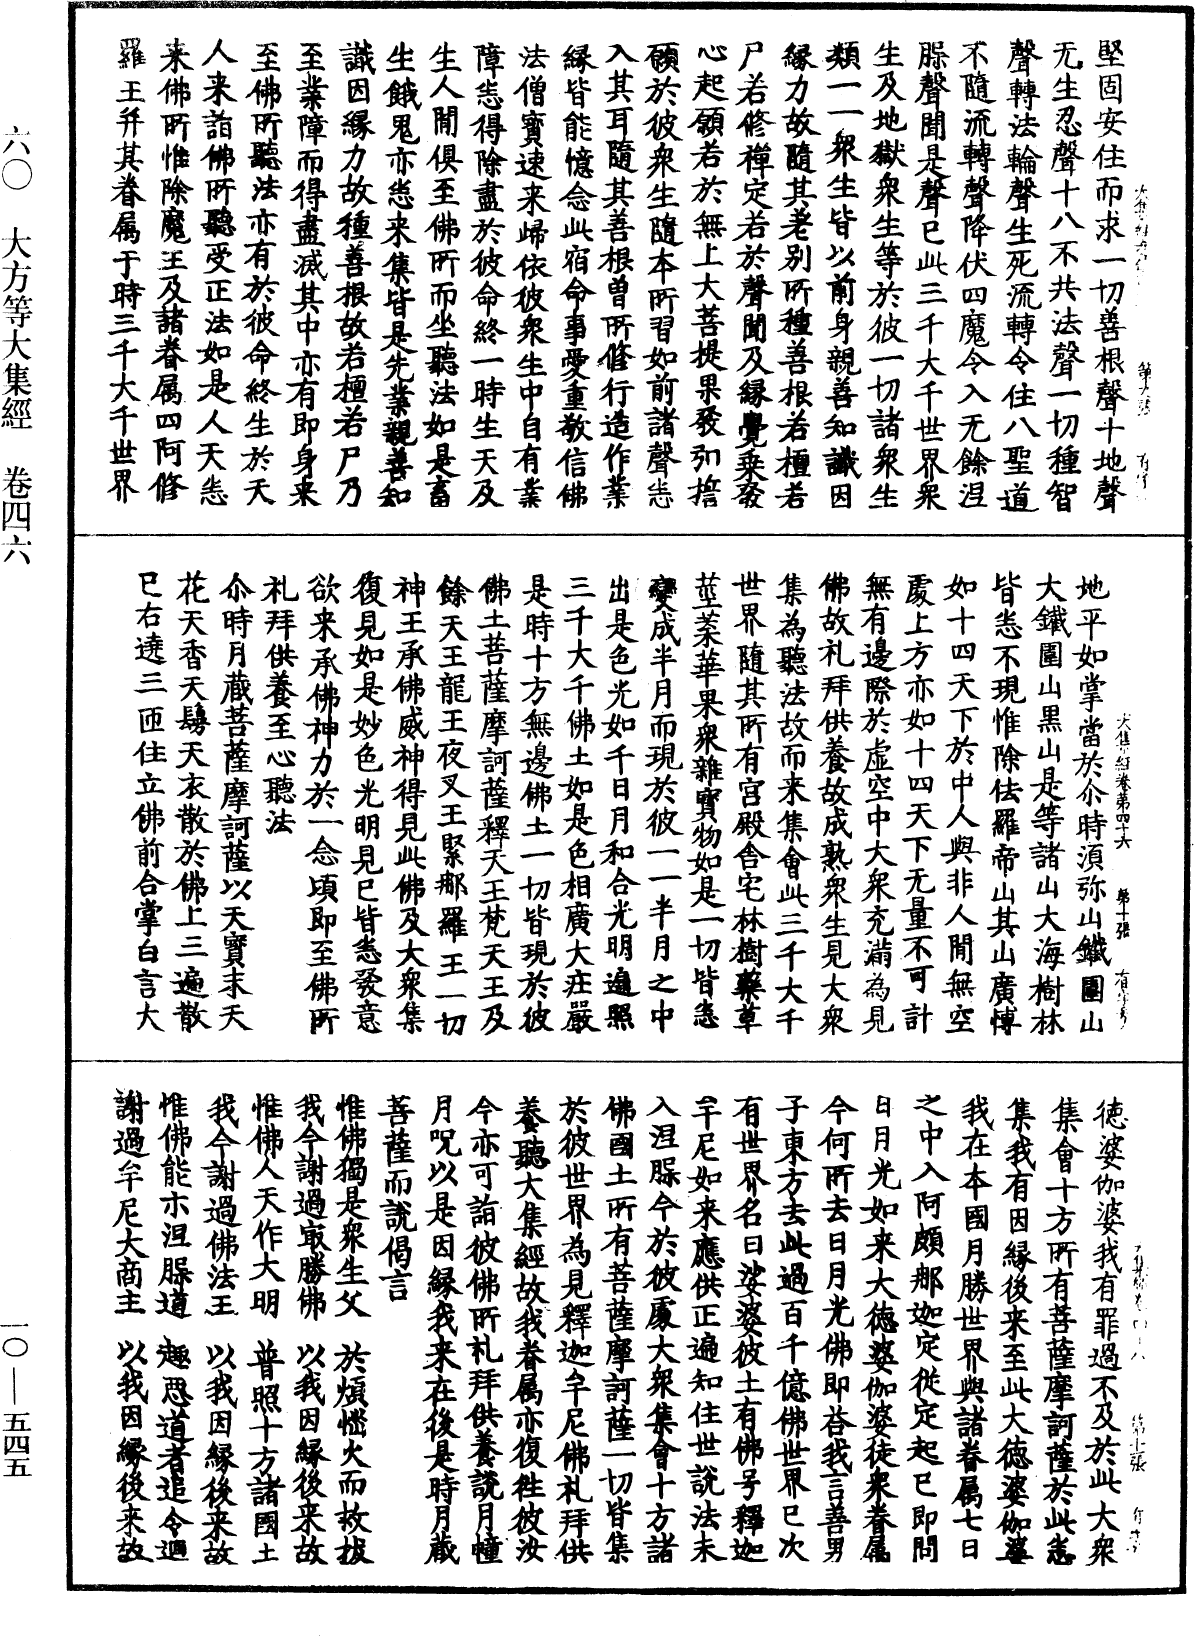 堅固安住而求一切善根聲十地聲
无生忍聲十八不共法聲一切種智
聲轉法輪聲生死流轉令住八聖道
不隨流轉聲降伏四魔令入无餘涅
槃聲聞是聲已此三千大千世界衆
生及地獄衆生等於彼一切諸衆生
類一一衆生皆以前身親善知識因
縁力故隨其差別所種善根若檀若
尸若修禪定若於聲聞及縁覺乗發
心起願若於無上大菩提果發弘誓
願於彼衆生隨本所習如前諸聲悉
入其耳隨其善根曽所修行造作業
縁皆能憶念此宿命事愛重敬信佛
法僧寳速来歸依彼衆生中自有業
障悉得除盡於彼命終一時生天及
生人間俱至佛所而坐聽法如是畜
生餓鬼亦悉来集皆是先業親善知
識因縁力故種善根故若檀若尸乃
至業障而得盡滅其中亦有即身来
至佛所聽法亦有於彼命終生於天
人来詣佛所聽受正法如是人天悉
来佛所惟除魔王及諸眷属四阿修
羅王并其眷属于時三千大千世界
大集經卷第四十六 第十張
地平如掌當於尒時湏弥山鐵圍山
大鐵圍山黒山是等諸山大海樹林
皆悉不現惟除佉羅帝山其山廣愽
如十四天下於中人與非人間無空
處上方亦如十四天下无量不可計
無有邊際於虚空中大衆充滿為見
佛故礼拜供養故成熟衆生見大衆
集為聽法故而来集會此三千大千
世界隨其所有宮殿舎宅林樹藥草
莖葉華果衆雜寳物如是一切皆悉
變成半月而現於彼一一半月之中
出是色光如千日月和合光明遍照
三千大千佛土如是色相廣大庄嚴
是時十方無邊佛土一切皆現於彼
佛土菩薩摩訶薩釋天王梵天王及
餘天王龍王夜叉王緊那羅王一切
神王承佛威神得見此佛及大衆集
復見如是妙色光明見已皆悉發意
欲来承佛神力於一念頃即至佛所
礼拜供養至心聽法
尒時月藏菩薩摩訶薩以天寳末天
花天香天鬘天衣散於佛上三遍散
已右遶三匝住立佛前合掌白言大
徳婆伽婆我有罪過不及於此大衆
集會十方所有菩薩摩訶薩於此悉
集我有因縁後来至此大徳婆伽婆
我在本國月勝世界與諸眷属七日
之中入阿頗那迦定従定起已即問
日月光如来大徳婆伽婆徒衆眷属
今何所去日月光佛即荅我言善男
子東方去此過百千億佛世界已次
有世界名曰娑婆彼土有佛号釋迦
牟尼如来應供正遍知住世說法未
入涅槃今於彼處大衆集會十方諸
佛國土所有菩薩摩訶薩一切皆集
於彼世界為見釋迦牟尼佛礼拜供
養聽大集經故我眷属亦復徃彼汝
今亦可詣彼佛所礼拜供養說月幢
月呪以是因縁我来在後是時月藏
菩薩而說偈言
惟佛獨是衆生父 於煩惱火而救拔
我今謝過㝡勝佛 以我因縁後来故
惟佛人天作大明 普照十方諸國土
我今謝過佛法王 以我因縁後来故
惟佛能示涅槃道 趣惡道者追令迴
謝過牟尼大商主 以我因縁後来故
六〇 大方等大集經 卷四六
一〇—五四五